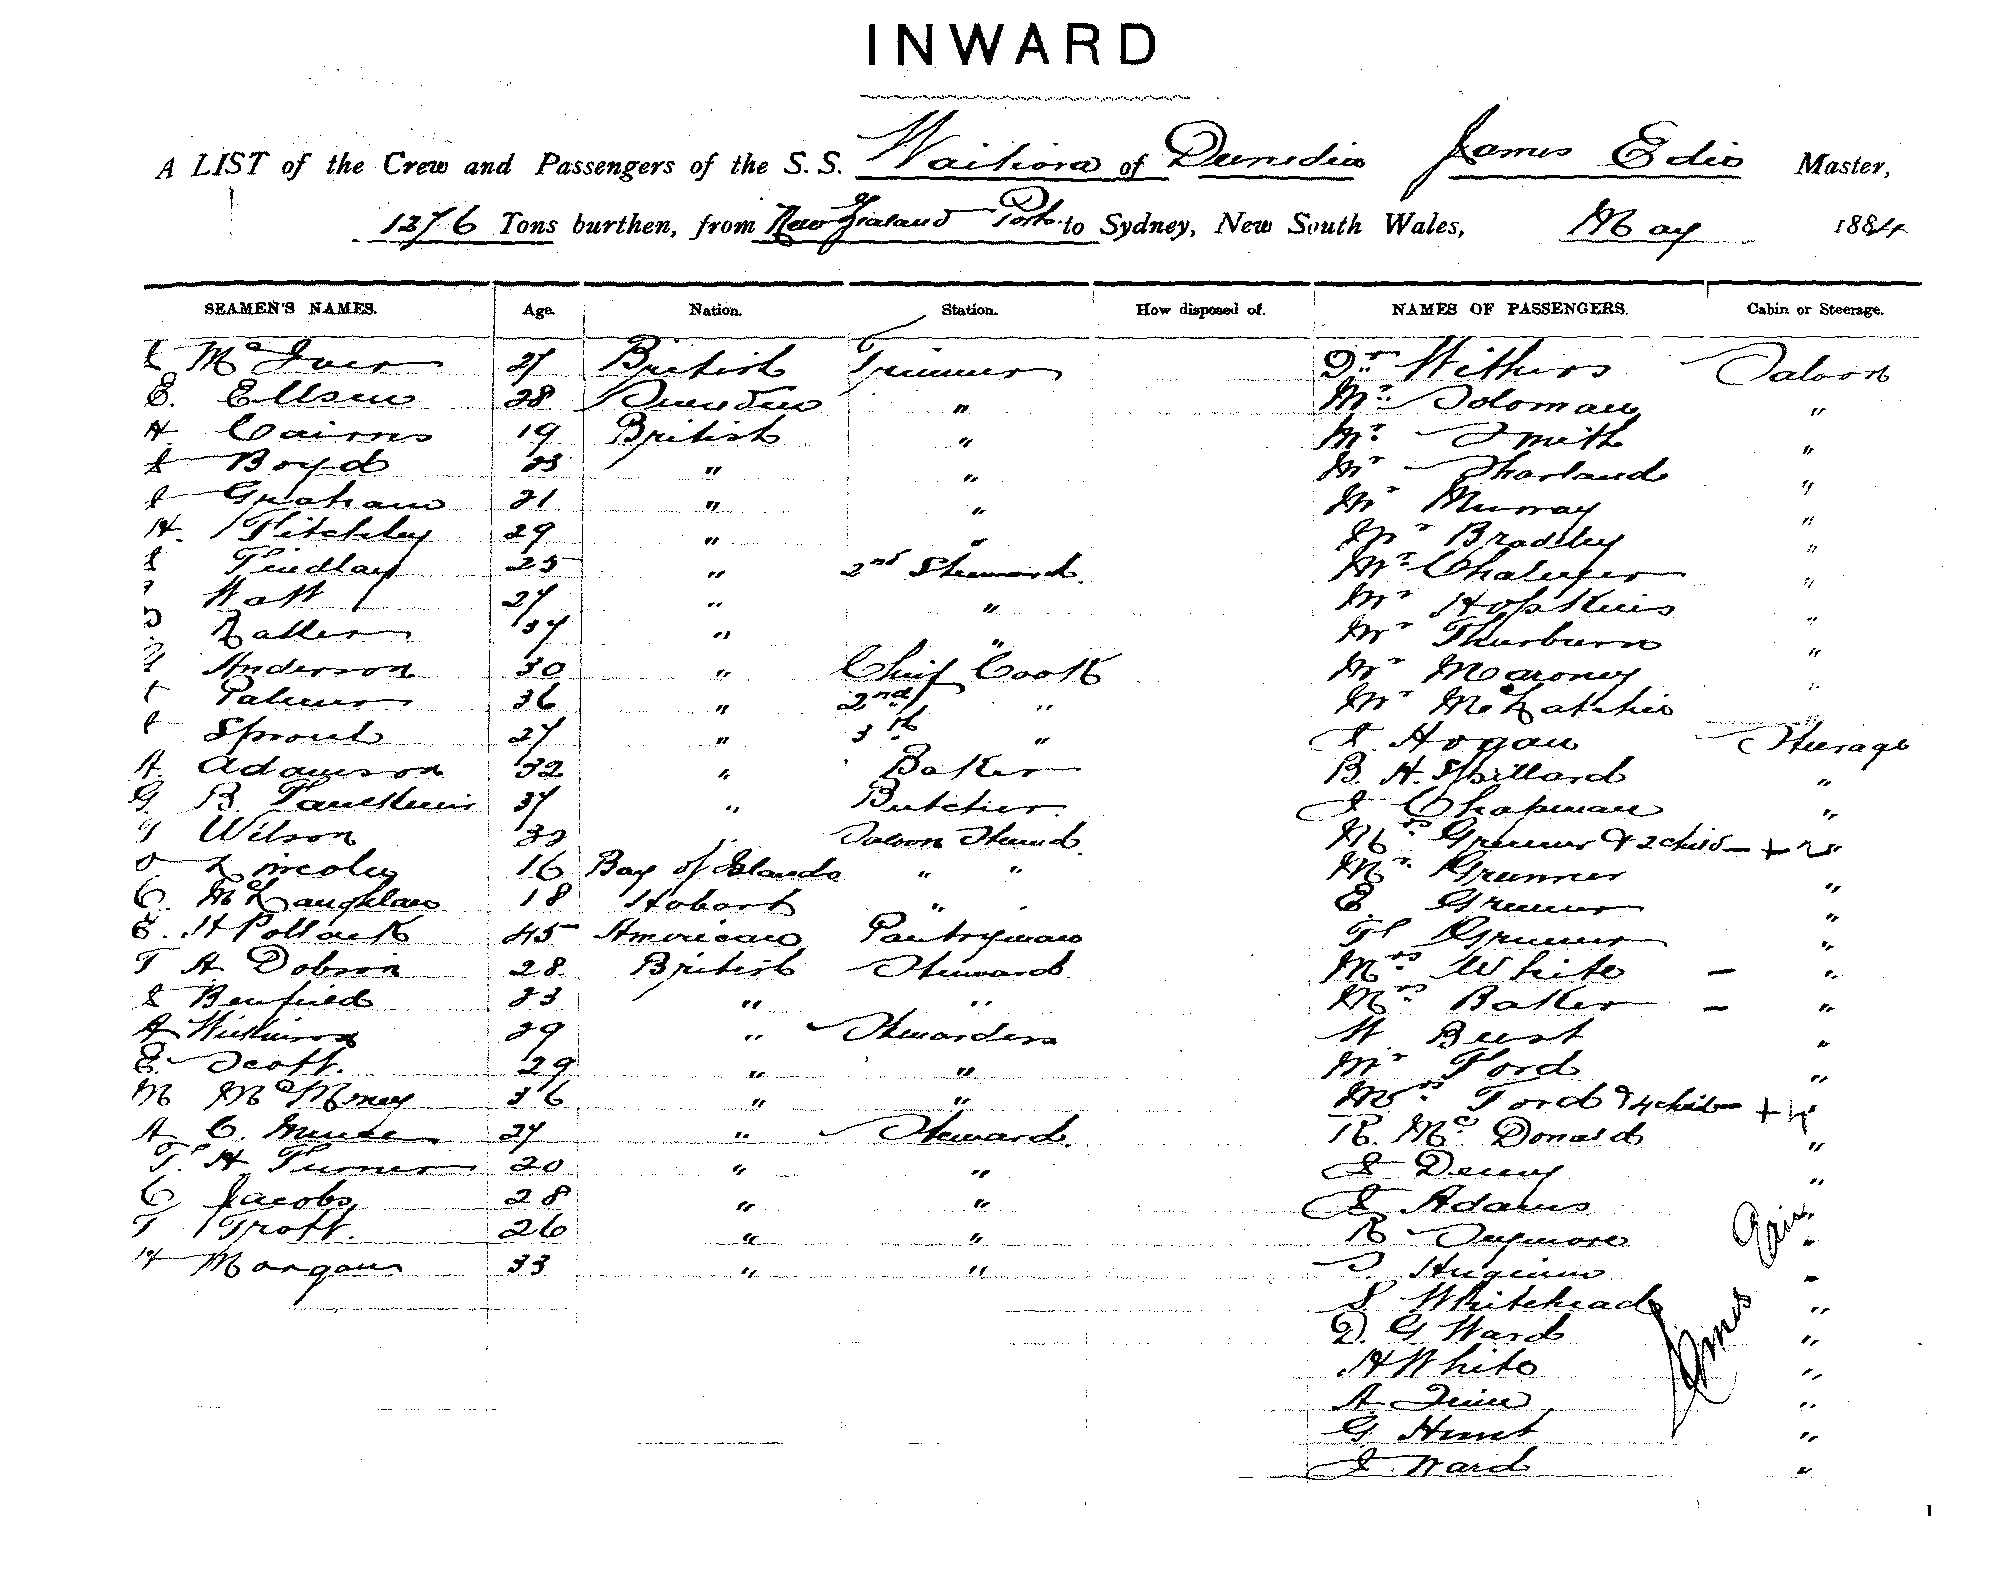 INWARD
A LIST of the Crew and Passengers of the S. S. of Dunedin James Edie Master,
1276 Tons burthen, from New Zealand Ports to Sydney, New South Wales, May 1884
SEAMEN'S NAMES. Age. Nation. Station. How disposed of. NAMES OF PASSENGERS. Cabin or Steerage.
Mc Iver 27 British Trimmer Dr Withers Saloon
E. Ellsen 28 " Mr Soloman "
H. Cairns 19 British " Mr Smith "
Boyd 23 " " Mr "
Graham 21 " " Mr Murray "
H. 29 " " Mr Bradley "
Findlay 25 " 2nd Steward Mr "
Watt 27 " " Mr Hopkins "
37 " " Mr Thurburn "
Anderson 30 " Chief Cook Mr Maroney "
Palmer 36 " 2nd " Mr "
Sproul 27 " 3th " Hogan Steerage
A. Adamson 32 " Baker B. H. Spillard "
G. B. 37 " Butcher J Chapman "
Wilson " Saloon Steward Mrs & 2 child - + 2 "
Lincoln 16 Bay of Islands " " Mr "
C. McLaughlan 18 Hobart " " E. "
E. H Pollack 45 American Pantryman "
T A Dobson 28 British Steward Mrs White - "
Benfield 23 " " Mrs Baker - "
A Wilkinson 29 " Stewardess W Best "
E. Scott. 29 " " Mr Ford "
M 36 " " Mrs Ford & 4 child - + 4 "
A C. 27 " Steward R. Mc Donald "
T. H. Turner 20 " " J Denny "
C Jacobs 28 " " J Adams "
T 26 " " R "
H Morgan 33 " " "
S Whitehead "
D. G Ward "
H White "
A. "
G Hunt "
J Ward "
James Edie